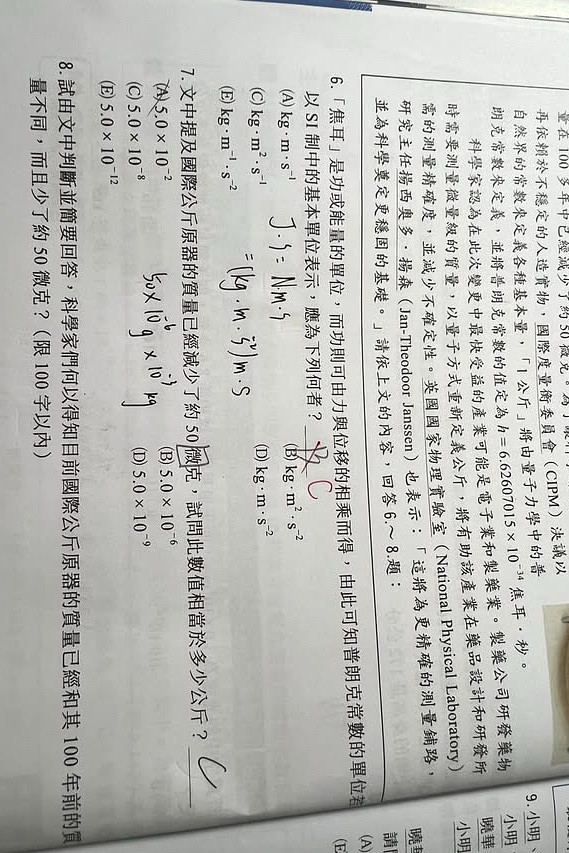 量在 100 多年中已經減少了約 50 微克。為了
再依賴於不穩定的人造實物，國際度量衡委員會（CIPM）決議以
自然界的常數來定義各種基本量，「1 公斤」將由量子力學中的普
朗克常數來定義，並將普朗克常數的值定為 h = 6.62607015 × 10⁻³⁴ 焦耳．秒。
科學家認為在此次變更中最快受益的產業可能是電子業和製藥業。製藥公司研發藥物
時需要測量微量級的質量，以量子方式重新定義公斤，將有助該產業在藥品設計和研發所
需的測量精確度，並減少不確定性。英國國家物理實驗室（National Physical Laboratory）
研究主任揚西奧多．揚森（Jan-Theodoor Janssen）也表示：「這將為更精確的測量鋪路，
並為科學奠定更穩固的基礎。」請依上文的內容，回答 6.～8.題：
6. 「焦耳」是功或能量的單位，而功則可由力與位移的相乘而得，由此可知普朗克常數的單位若
以 SI 制中的基本單位表示，應為下列何者？ C
(A) kg．m．s⁻¹ (B) kg．m²．s⁻²
(C) kg．m²．s⁻¹ (D) kg．m．s⁻²
(E) kg．m⁻¹．s⁻²
J．s = Nm．s
= (kg．m．s⁻²) m．s
7. 文中提及國際公斤原器的質量已經減少了約 50 微克，試問此數值相當於多少公斤？ C
(A) 5.0 × 10⁻² (B) 5.0 × 10⁻⁶
(C) 5.0 × 10⁻⁸ (D) 5.0 × 10⁻⁹
(E) 5.0 × 10⁻¹²
50 × 10⁻⁶ g × 10⁻³ kg
8. 試由文中判斷並簡要回答，科學家們何以得知目前國際公斤原器的質量已經和其 100 年前的質
量不同，而且少了約 50 微克？（限 100 字以內）
9. 小明、
小明
曉華
小明
曉華
請問
(A)
(E)